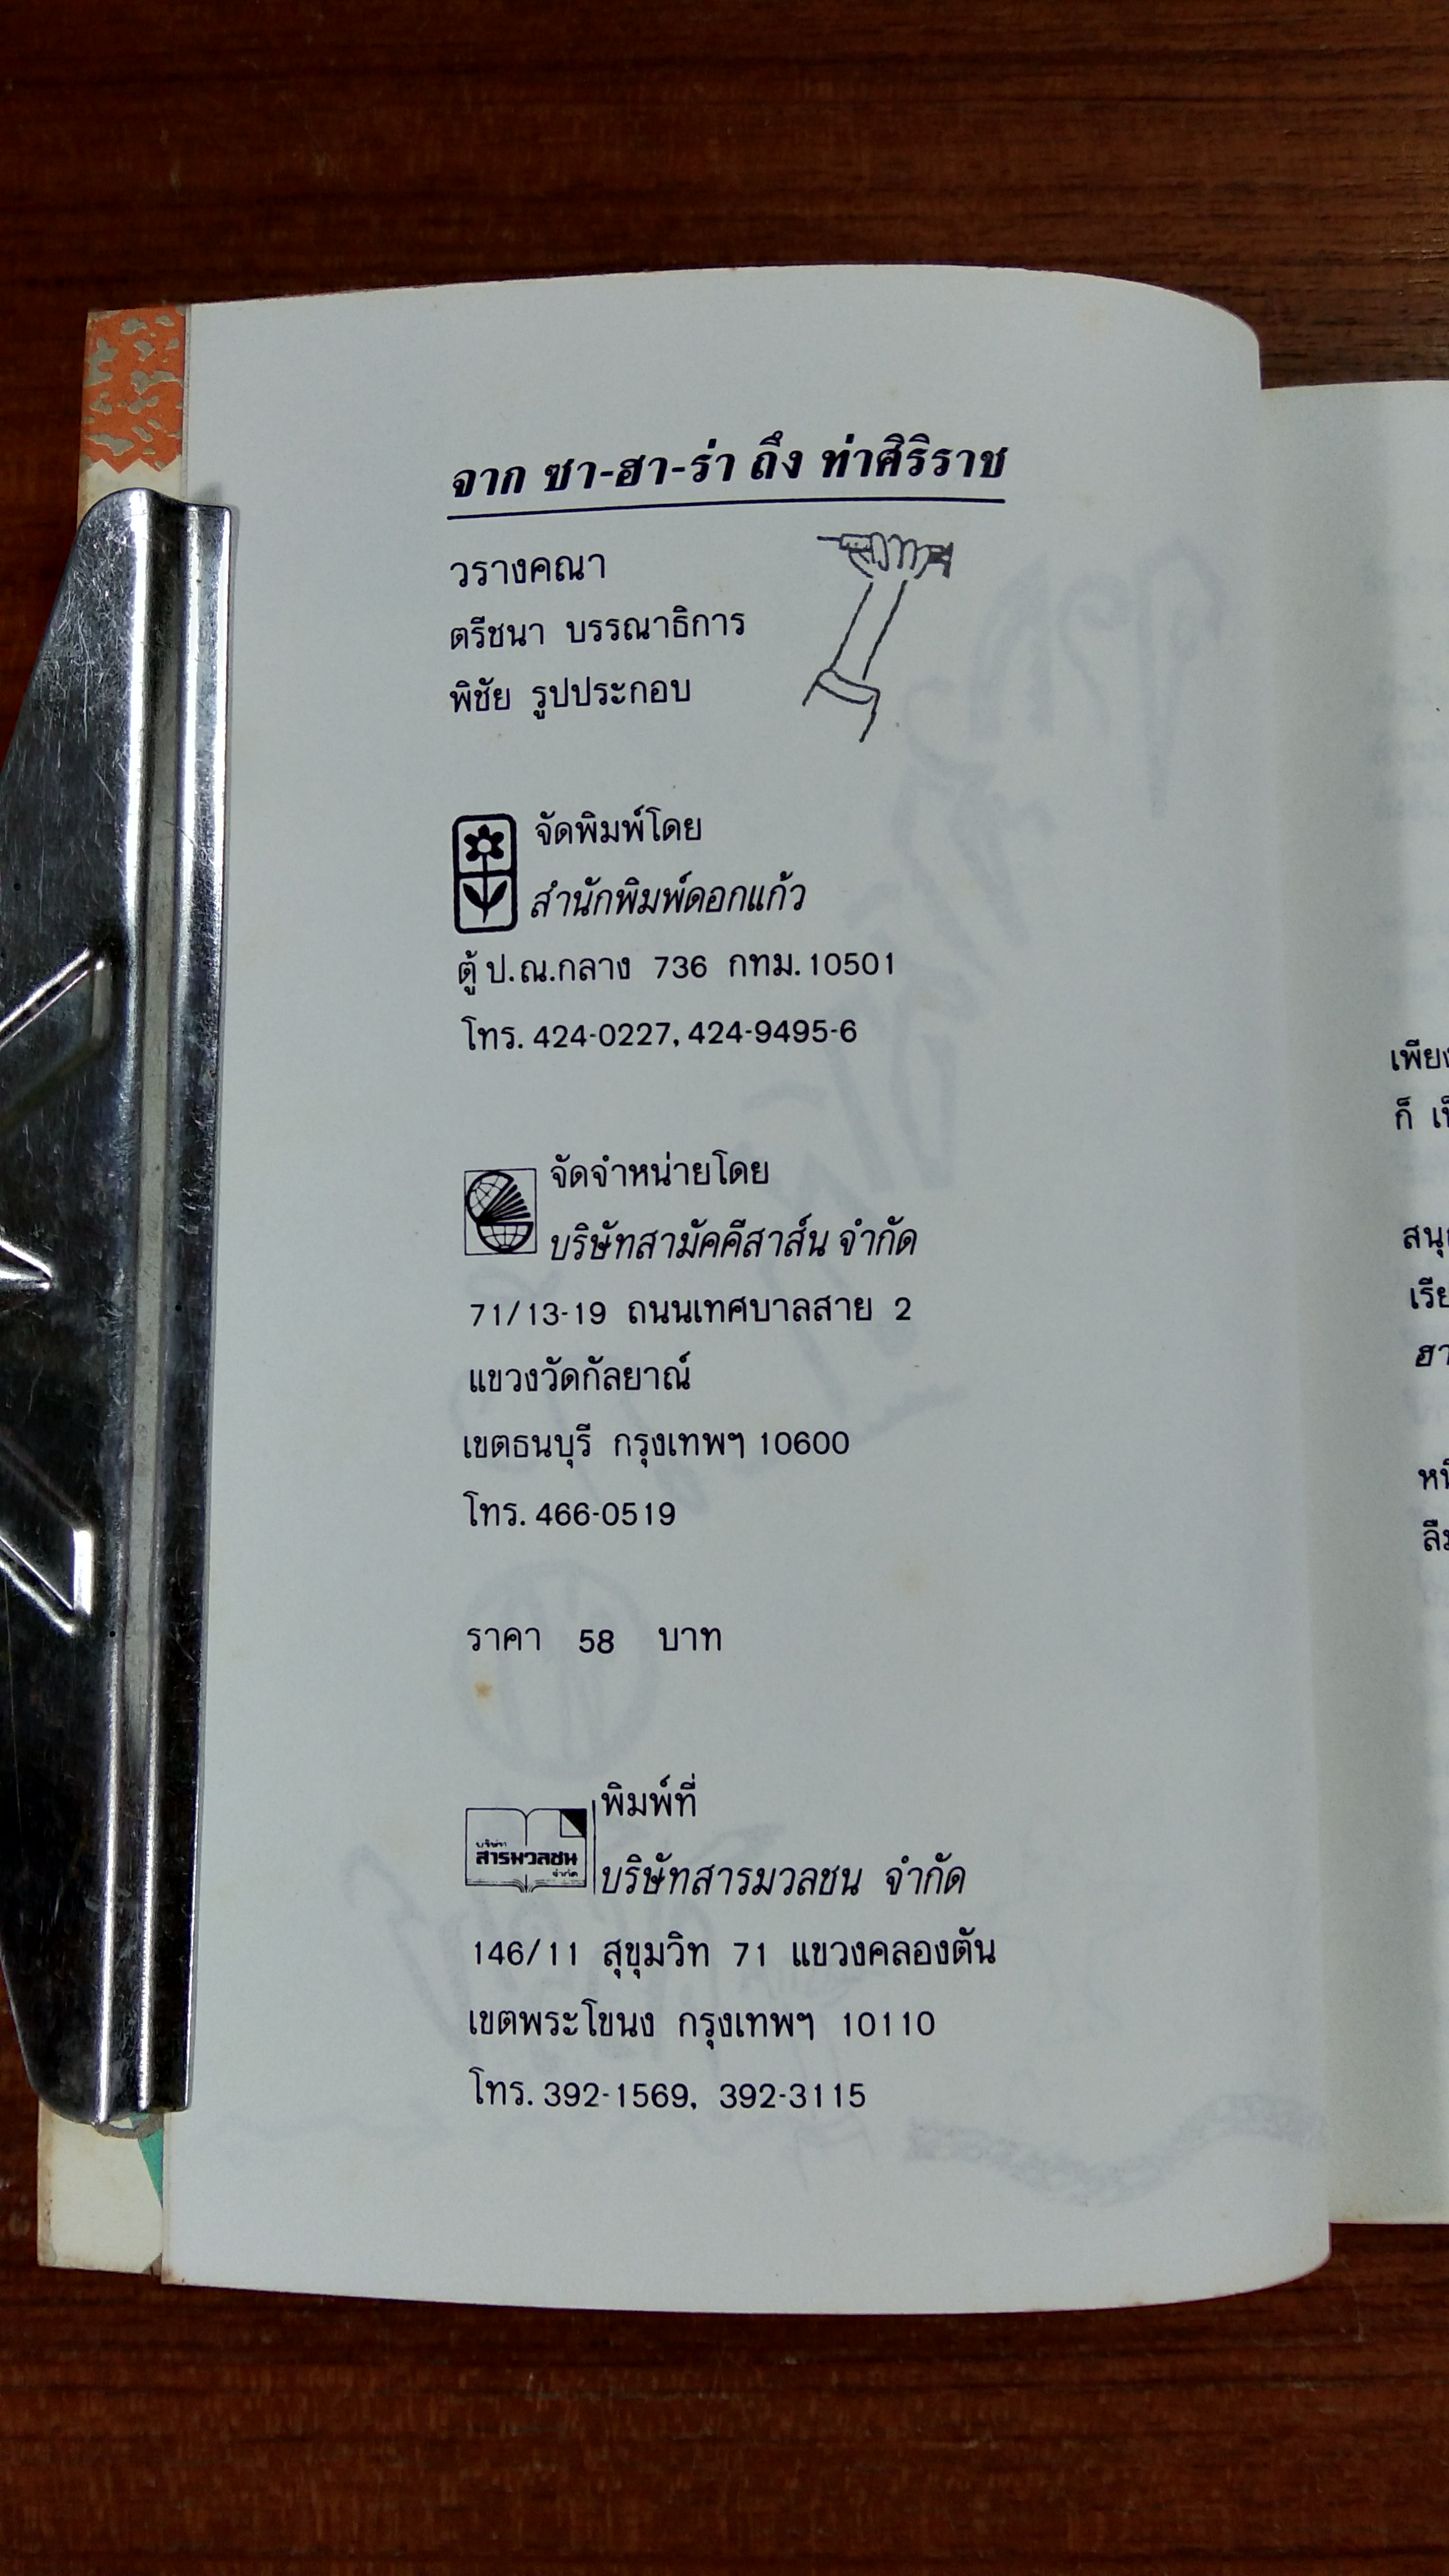 จาก ซา-ฮา-ร่า ถึง ท่าศิริราช
วรางคณา
ตรีชนา บรรณาธิการ
พิชัย รูปประกอบ
จัดพิมพ์โดย
สำนักพิมพ์ดอกแก้ว
ตู้ ป.ณ.กลาง 736 กทม. 10501
โทร. 424-0227, 424-9495-6
จัดจำหน่ายโดย
บริษัทสามัคคีสาส์น จำกัด
71/13-19 ถนนเทศบาลสาย 2
แขวงวัดกัลยาณ์
เขตธนบุรี กรุงเทพฯ 10600
โทร. 466-0519
ราคา 58 บาท
พิมพ์ที่
บริษัท
สารมวลชน
จำกัด
บริษัทสารมวลชน จำกัด
146/11 สุขุมวิท 71 แขวงคลองตัน
เขตพระโขนง กรุงเทพฯ 10110
โทร. 392-1569, 392-3115
ก็